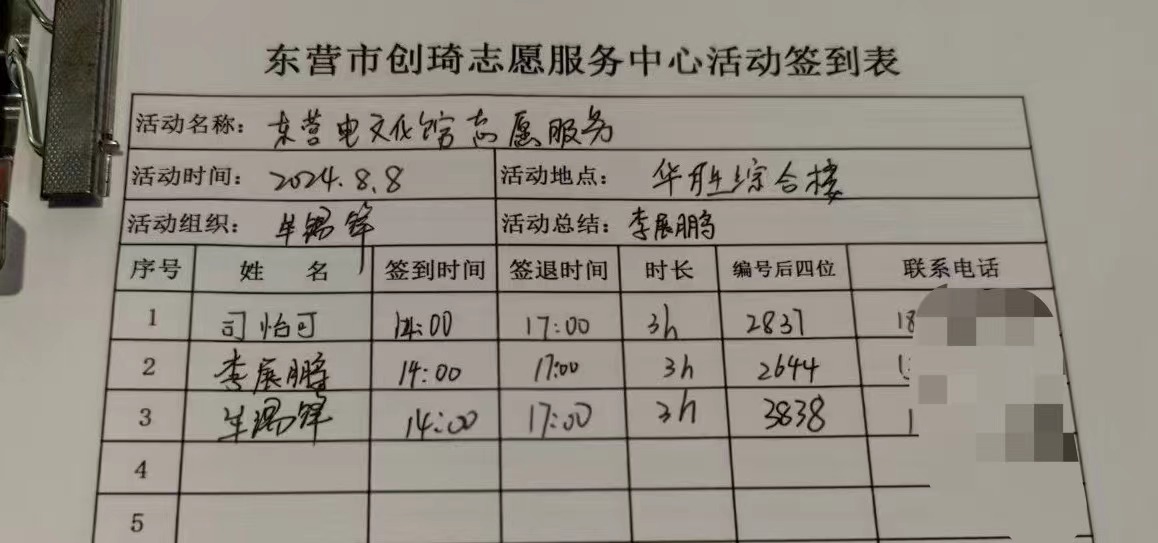 东营市创琦志愿服务中心活动签到表
活动名称: 东营电文化馆志愿服务
活动时间: 2024.8.8 活动地点: 华胜综合楼
活动组织: 牛锡锋 活动总结: 李展鹏
序号 姓 名 签到时间 签退时间 时长 编号后四位 联系电话
1 司怡可 14:00 17:00 3h 2837 18
2 李展鹏 14:00 17:00 3h 2644 1
3 牛锡锋 14:00 17:00 3h 3838 1
4
5